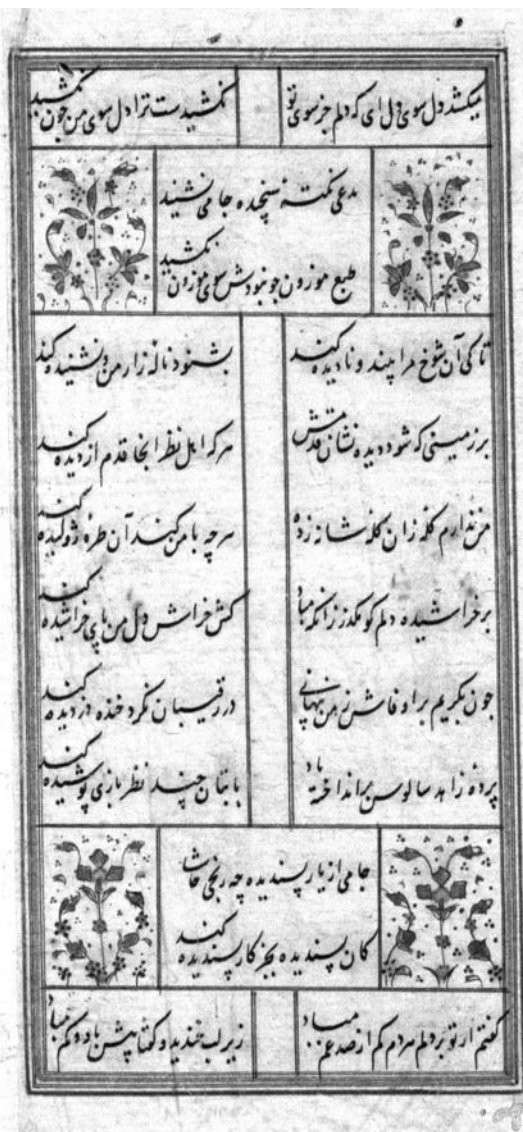 میکشد دل سوی دل ای که دلم جز سوی تو
نکشیدست ترا دل سوی من چون نکشید
مدعی نکته سنجیده جامی نشنید
طبع موزون چو نبودش سوی موزون نکشید
تا کی آن شوخ مرا بیند و نادیده کند
بشنود ناله زار من و نشنیده کند
بر زمینی که شود دیده نشان قدمش
هر که اهل نظر آنجا قدم از دیده کند
من ندارم گله زان کاکل شانه زده
هر چه با من کند آن طره ژولیده کند
بر خراشیده دلم کو مگذر زانکه مباد
کش خراش دل من پای خراشیده کند
چون بگریم بر او فاش ز من پنهانی
در رقیبان نگرد خنده دزدیده کند
پرده زاهد سالوس بر انداخته باد
با بتان چند نظر بازی پوشیده کند
جامی از یار پسندیده چه رنجی حاشا
کان پسندیده بجز کار پسندیده کند
گفتم از تو بر دلم هر دم کم از صد غم مباد
زیر لب خندید و گفتا بیش باد و کم مباد